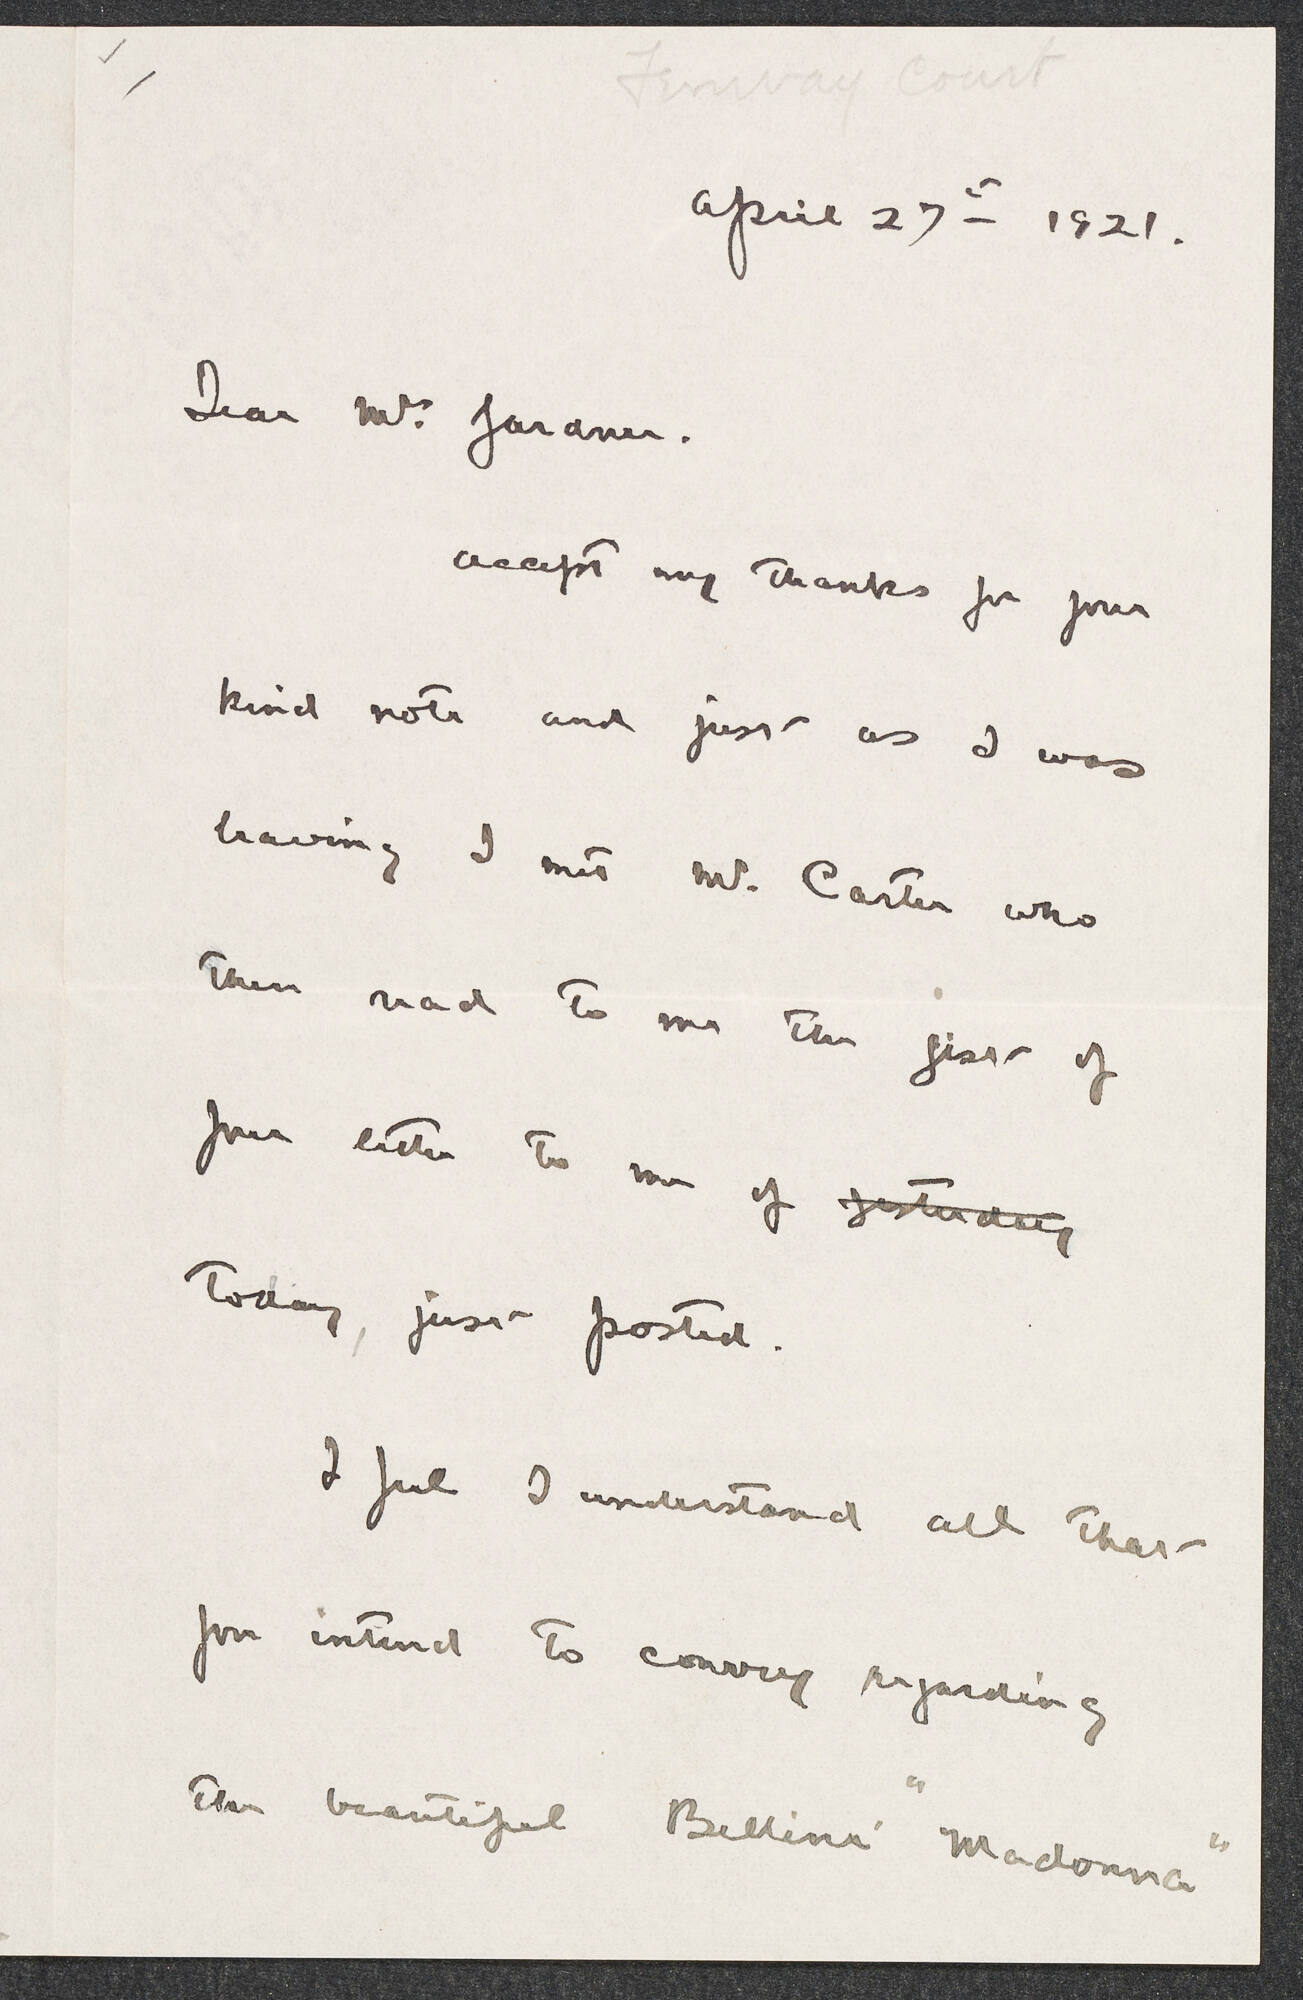 Fenway Court
April 27th 1921.
Dear Mrs. Gardner.
accept my thanks for your
kind note and just as I was
leaving I met Mr. Carter who
then read to me the gist of
your letter to me of yesterday
today, just posted.
I feel I understand all that
you intend to convey regarding
the beautiful Bellini "Madonna"